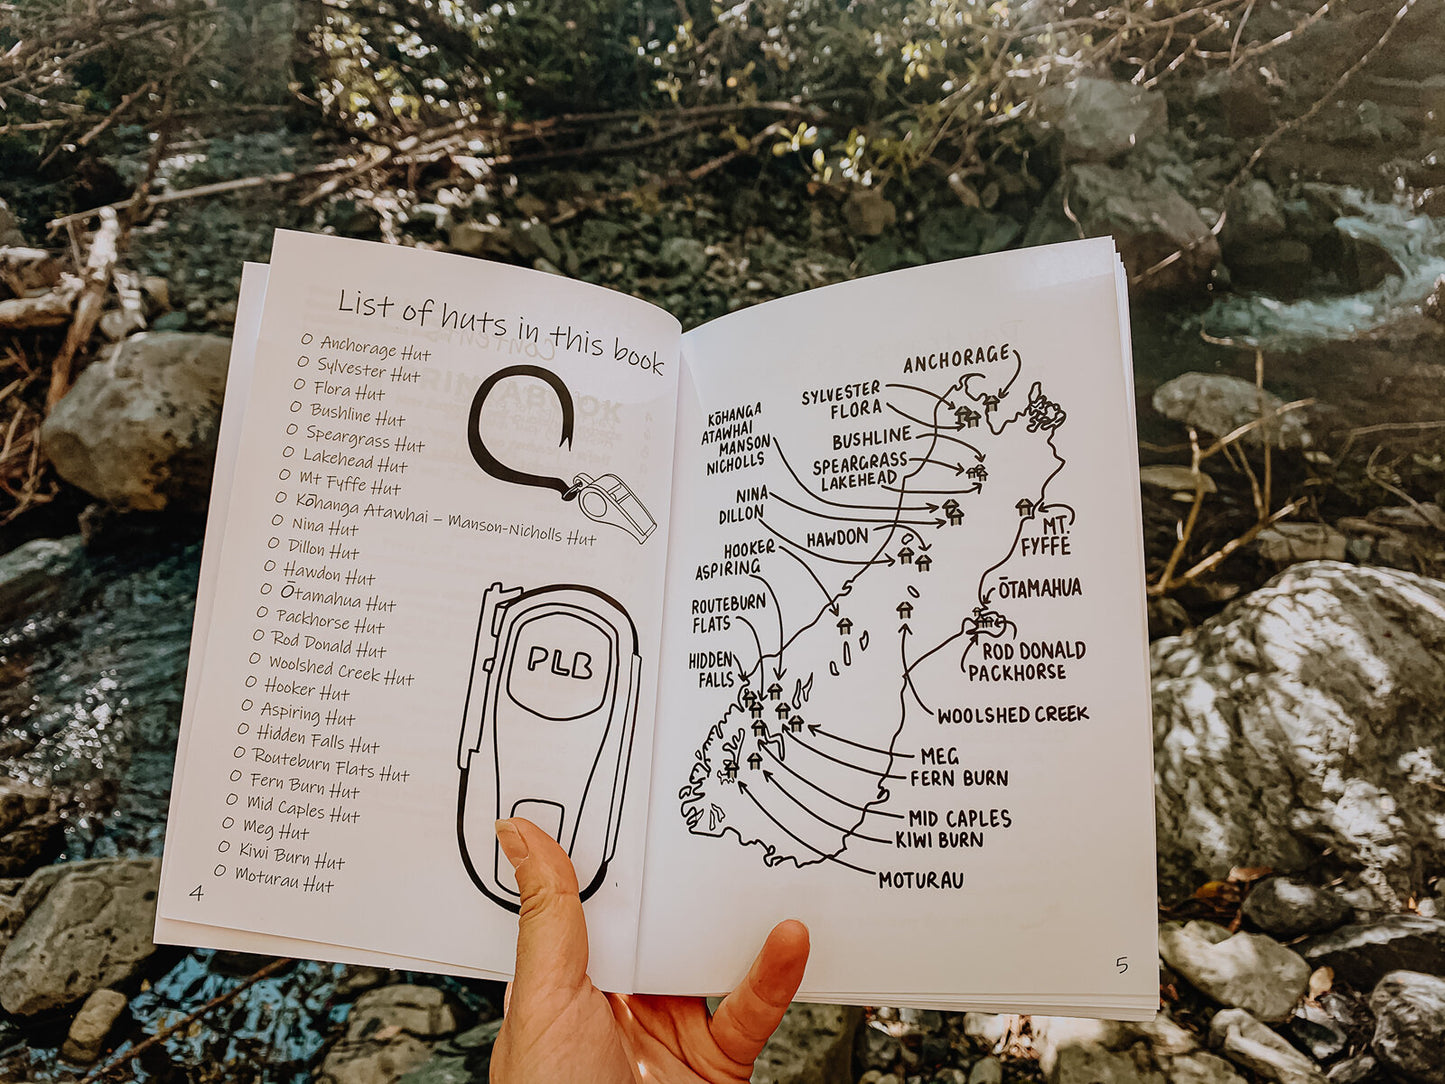 List of huts in this book
O Anchorage Hut
O Sylvester Hut
O Flora Hut
O Bushline Hut
O Speargrass Hut
O Lakehead Hut
O Mt Fyffe Hut
O Kōhanga Atawhai – Manson-Nicholls Hut
O Nina Hut
O Dillon Hut
O Hawdon Hut
O Ōtamahua Hut
O Packhorse Hut
O Rod Donald Hut
O Woolshed Creek Hut
O Hooker Hut
O Aspiring Hut
O Hidden Falls Hut
O Routeburn Flats Hut
O Fern Burn Hut
O Mid Caples Hut
O Meg Hut
O Kiwi Burn Hut
O Moturau Hut
4
PLB
ANCHORAGE
SYLVESTER
FLORA
KŌHANGA
ATAWHAI
MANSON
NICHOLLS
BUSHLINE
SPEARGRASS
LAKEHEAD
NINA
DILLON
HAWDON
MT.
FYFFE
HOOKER
ASPIRING
ŌTAMAHUA
ROUTEBURN
FLATS
ROD DONALD
PACKHORSE
HIDDEN
FALLS
WOOLSHED CREEK
MEG
FERN BURN
MID CAPLES
KIWI BURN
MOTURAU
5